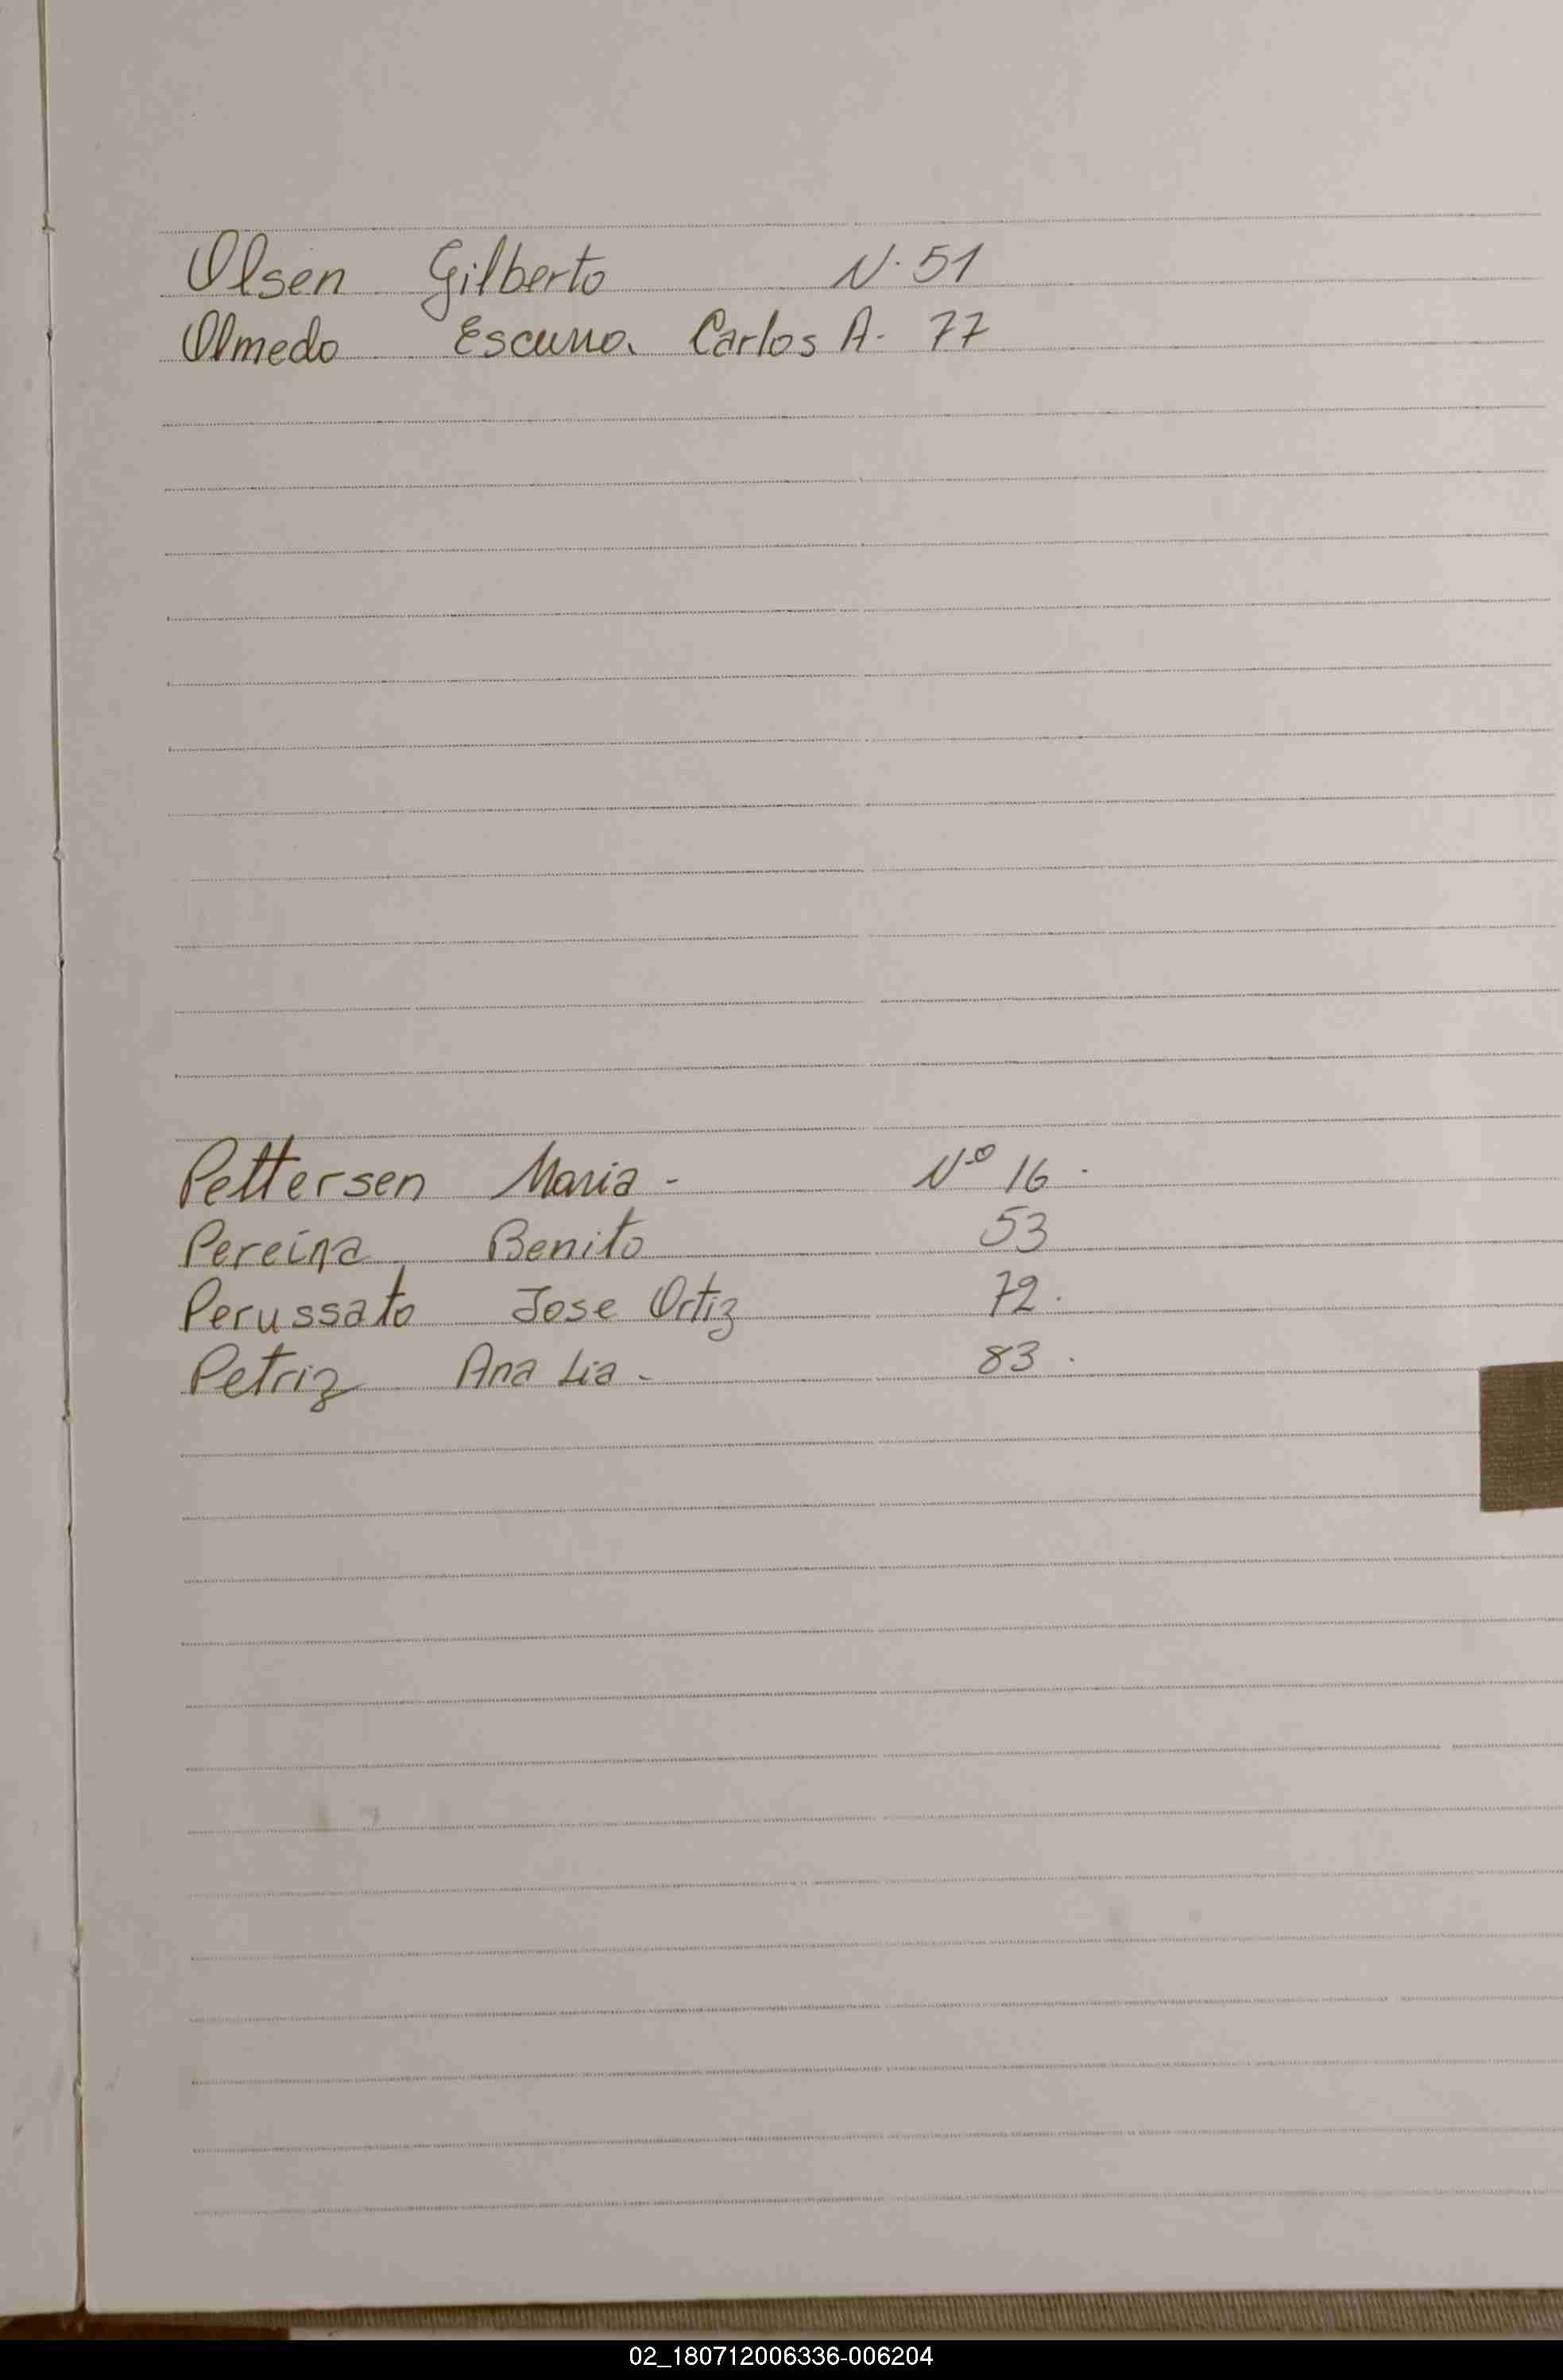 Olsen Gilberto N. 51
Olmedo Escurra. Carlos A. 77
Pettersen Maria - Nº 16.
Pereira Benito 53
Perussato Jose Ortiz 72.
Petriz Ana Lia - 83.
02_180712006336-006204